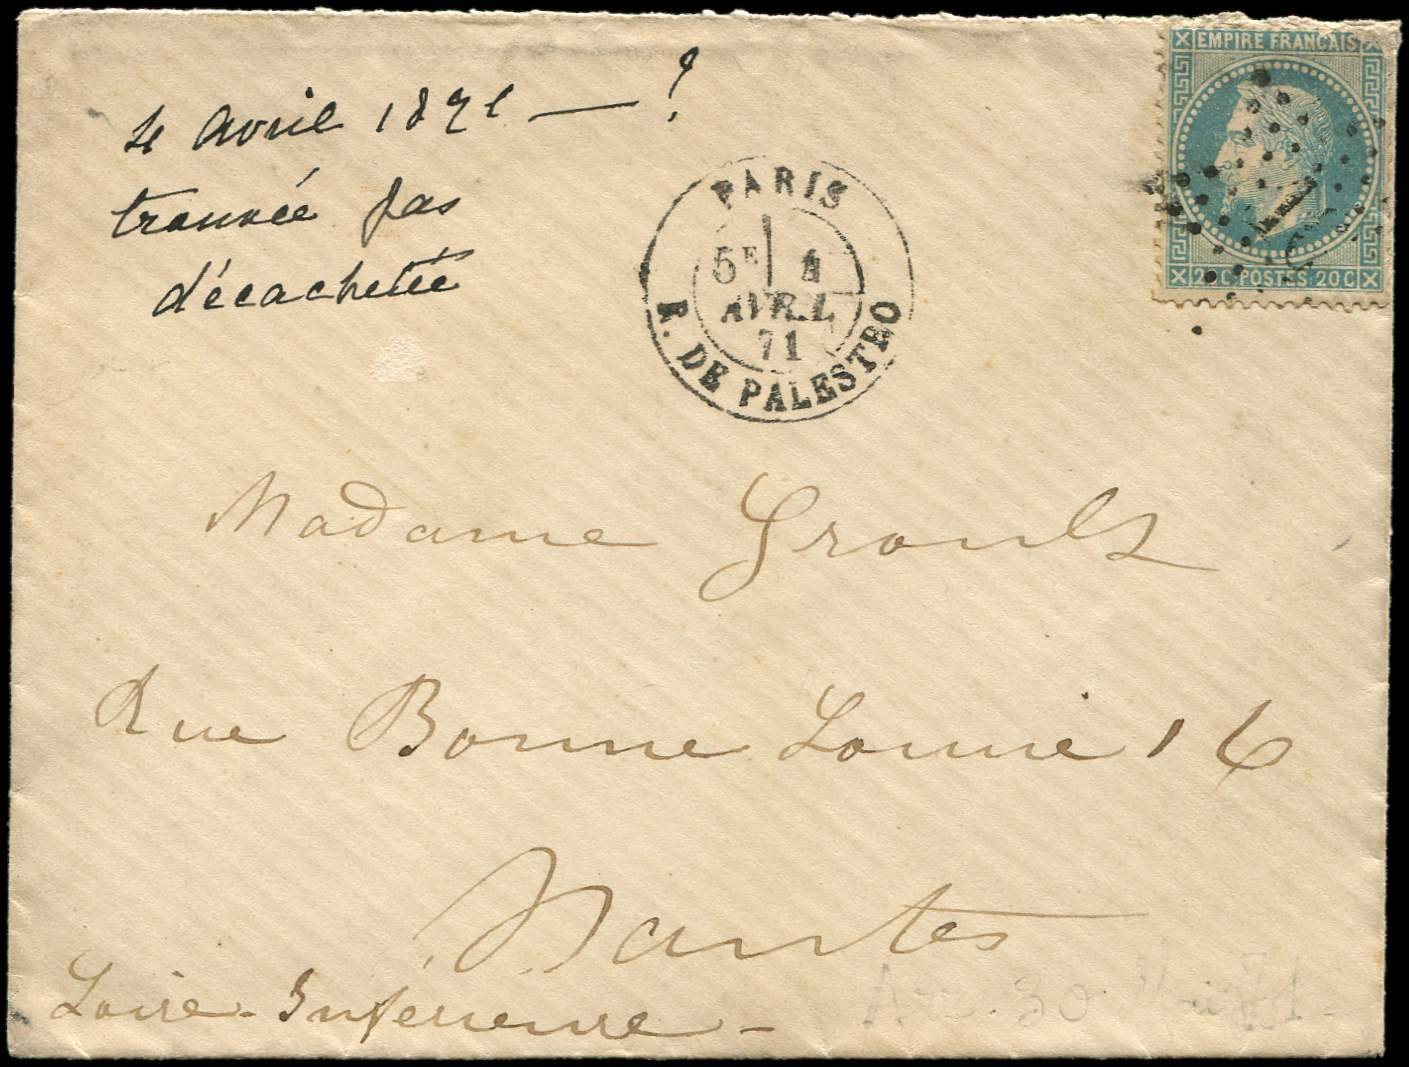 4 avril 1871 — ?
trouvée pas
décachetée
EMPIRE FRANCAIS
20 C. POSTES. 20 C
PARIS
5E 4
AVRIL
71
R. DE PALESTRO
Madame Groult
Rue Bonne Louise 16
Nantes
Loire-Inférieure-
Arr. 30 Mai 71-